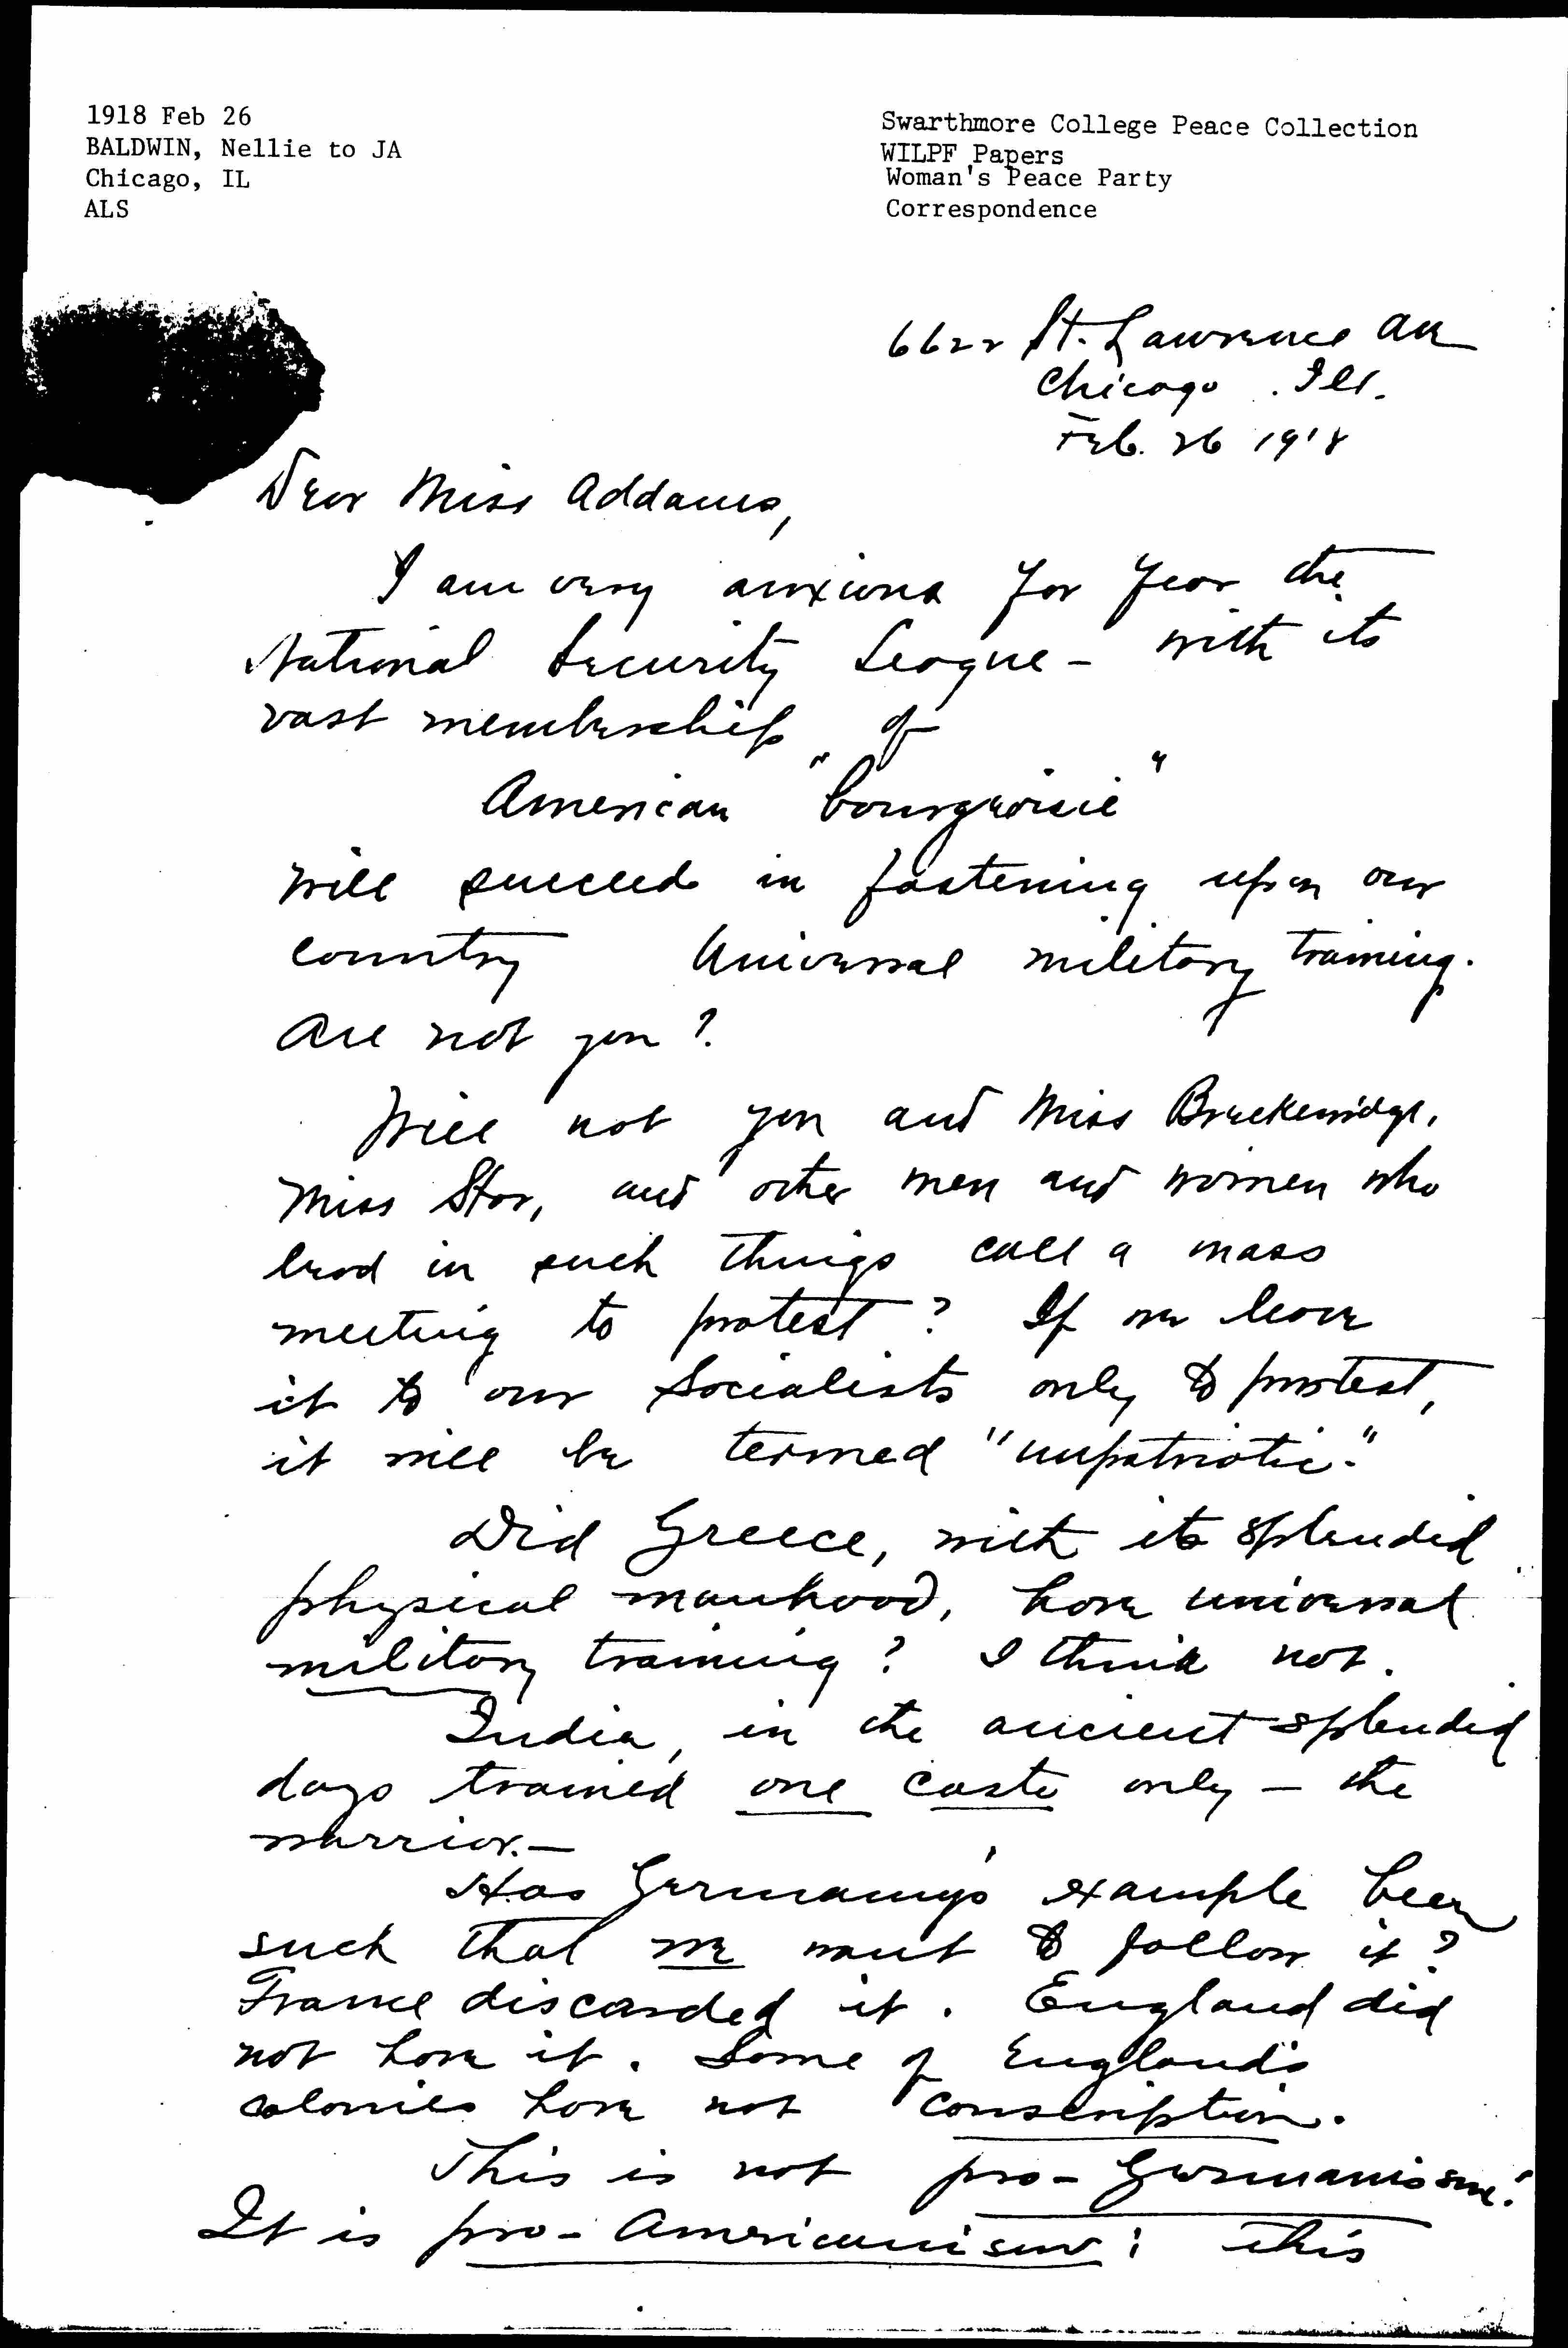 1918 Feb 26
BALDWIN, Nellie to JA
Chicago, IL
ALS
Swarthmore College Peace Collection
WILPF Papers
Woman's Peace Party
Correspondence
6622 St. Lawrence Ave
Chicago. Ill.
Feb. 26 1918
Dear Miss Addams,
I am very anxious for fear the
National Security League - with its
vast membership of
American "bourgeoisie"
will succeed in fastening upon our
country Universal military training.
Are not you?
Will not you and Miss Breckenridge,
Miss Starr, and other men and women who
lead in such things call a mass
meeting to protest? If we leave
it to our Socialists only to protest,
it will be termed "unpatriotic."
Did Greece, with its splendid
physical manhood, have universal
military training? I think not.
India, in the ancient splendid
days trained one caste only - the
warrior. -
Has Germany's example been
such that we want to follow it?
France discarded it. England did
not have it. Some of England's
colonies have not conscription.
This is not pro-Germanism!
It is pro-Americanism; this